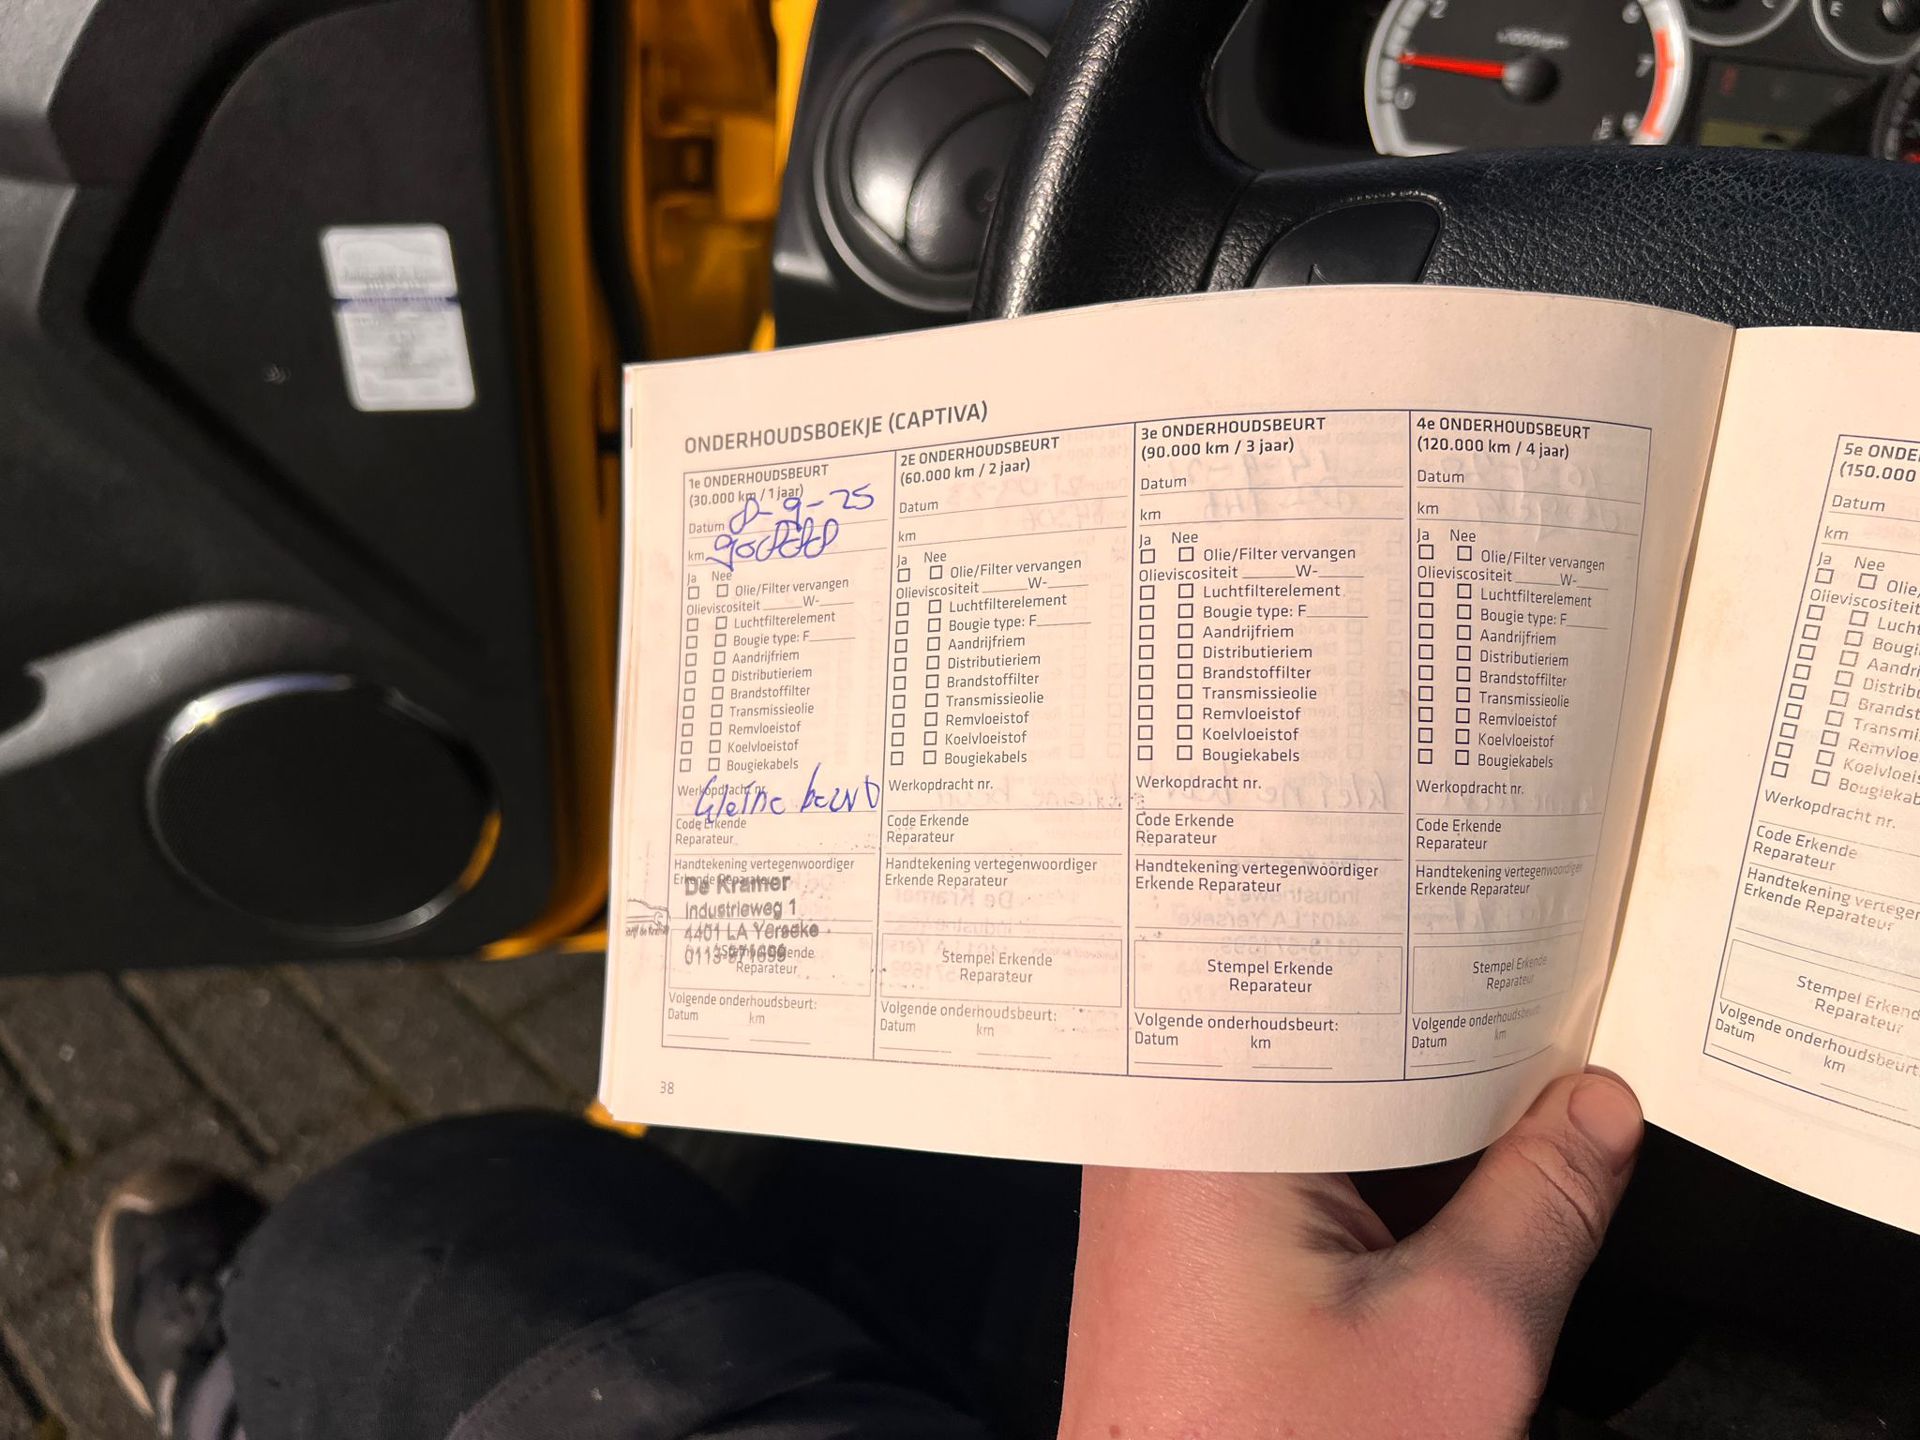 ONDERHOUDSBOEKJE (CAPTIVA)
1e ONDERHOUDSBEURT
(30.000 km / 1 jaar)
Datum 8-9-25
km
Ja Nee
Olie/Filter vervangen
Olieviscositeit ______W-______
Luchtfilterelement
Bougie type: F______
Aandrijfriem
Distributieriem
Brandstoffilter
Transmissieolie
Remvloeistof
Koelvloeistof
Bougiekabels
Werkopdracht nr.
kleine beurt
Code Erkende
Reparateur
Handtekening vertegenwoordiger
Erkende Reparateur
De Kramer
Industrieweg 1
4401 LA Yerseke
0113-571699
Stempel Erkende
Reparateur
Volgende onderhoudsbeurt:
Datum km
2E ONDERHOUDSBEURT
(60.000 km / 2 jaar)
Datum
km
Ja Nee
Olie/Filter vervangen
Olieviscositeit ______W-______
Luchtfilterelement
Bougie type: F______
Aandrijfriem
Distributieriem
Brandstoffilter
Transmissieolie
Remvloeistof
Koelvloeistof
Bougiekabels
Werkopdracht nr.
Code Erkende
Reparateur
Handtekening vertegenwoordiger
Erkende Reparateur
Stempel Erkende
Reparateur
Volgende onderhoudsbeurt:
Datum km
3e ONDERHOUDSBEURT
(90.000 km / 3 jaar)
Datum
km
Ja Nee
Olie/Filter vervangen
Olieviscositeit ______W-______
Luchtfilterelement
Bougie type: F______
Aandrijfriem
Distributieriem
Brandstoffilter
Transmissieolie
Remvloeistof
Koelvloeistof
Bougiekabels
Werkopdracht nr.
Code Erkende
Reparateur
Handtekening vertegenwoordiger
Erkende Reparateur
Stempel Erkende
Reparateur
Volgende onderhoudsbeurt:
Datum km
4e ONDERHOUDSBEURT
(120.000 km / 4 jaar)
Datum
km
Ja Nee
Olie/Filter vervangen
Olieviscositeit ______W-______
Luchtfilterelement
Bougie type: F______
Aandrijfriem
Distributieriem
Brandstoffilter
Transmissieolie
Remvloeistof
Koelvloeistof
Bougiekabels
Werkopdracht nr.
Code Erkende
Reparateur
Handtekening vertegenwoordiger
Erkende Reparateur
Stempel Erkende
Reparateur
Volgende onderhoudsbeurt:
Datum km
38
5e ONDE
(150.000
Datum
km
Ja Nee
Olie/
Olieviscositeit
Lucht
Bougi
Aandri
Distribu
Brandst
Transmis
Remvloe
Koelvloei
Bougiekab
Werkopdracht nr.
Code Erkende
Reparateur
Handtekening verteger
Erkende Reparateur
Stempel Erkend
Reparateur
Volgende onderhoudsbeurt
Datum km
2
1
0
6
7
8
E